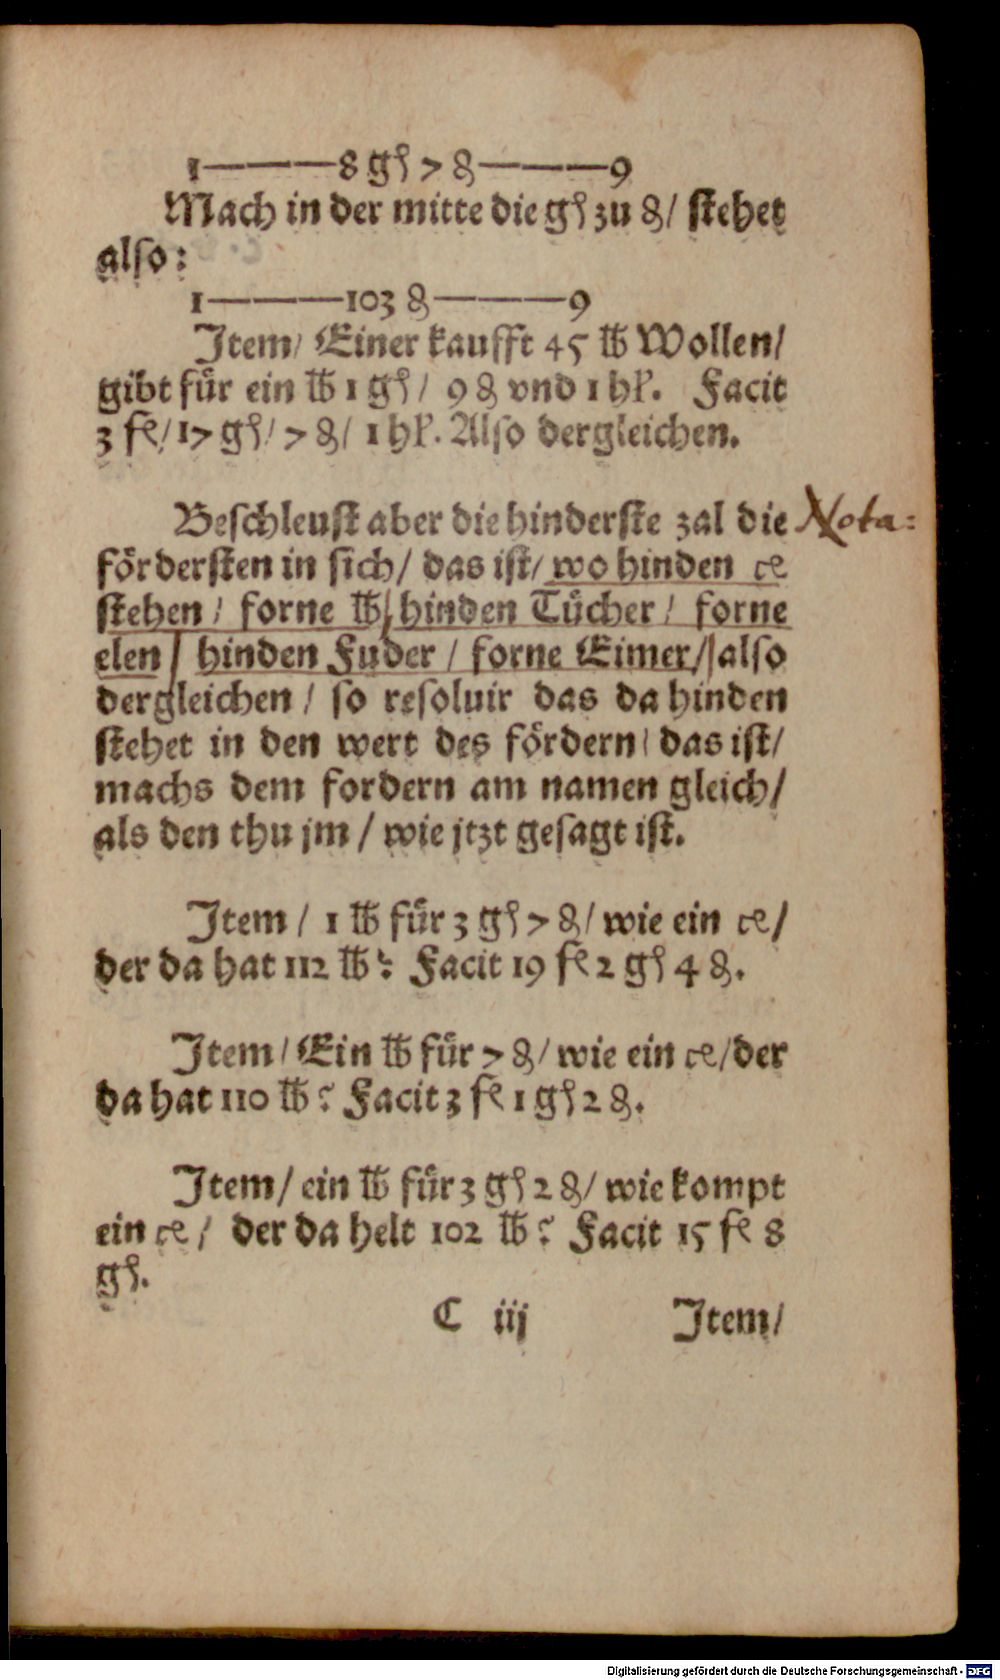 1———8 gʃ 7 ₰———9
Mach in der mitte die gʃ zu ₰/ ſtehet
alſo:
1———103 ₰———9
Item/ Einer kaufft 45 ℔ Wollen/
gibt fuͤr ein ℔ 1 gʃ/ 9 ₰ vnd 1 hl̕. Facit
3 fl/ 17 gʃ/ 7 ₰/ 1 hl̕. Alſo dergleichen.
Beſchleuſt aber die hinderſte zal die
Nota:
foͤrderſten in ſich/ das iſt/ wo hinden ce
ſtehen/ forne ℔/ hinden Tuͤcher/ forne
elen/ hinden Fuder/ forne Eimer/ alſo
dergleichen/ ſo reſoluir das da hinden
ſtehet in den wert des foͤrdern/ das iſt/
machs dem fordern am namen gleich/
als den thu jm/ wie jtzt geſagt iſt.
Item/ 1 ℔ fuͤr 3 gʃ 7 ₰/ wie ein ce/
der da hat 112 ℔? Facit 19 fl 2 gʃ 4 ₰.
Item/ Ein ℔ fuͤr 7 ₰/ wie ein ce/ der
da hat 110 ℔? Facit 3 fl 1 gʃ 2 ₰.
Item/ ein ℔ fuͤr 3 gʃ 2 ₰/ wie kompt
ein ce/ der da helt 102 ℔? Facit 15 fl 8
gʃ.
C iij Item/
Digitalisierung gefördert durch die Deutsche Forschungsgemeinschaft - DFG